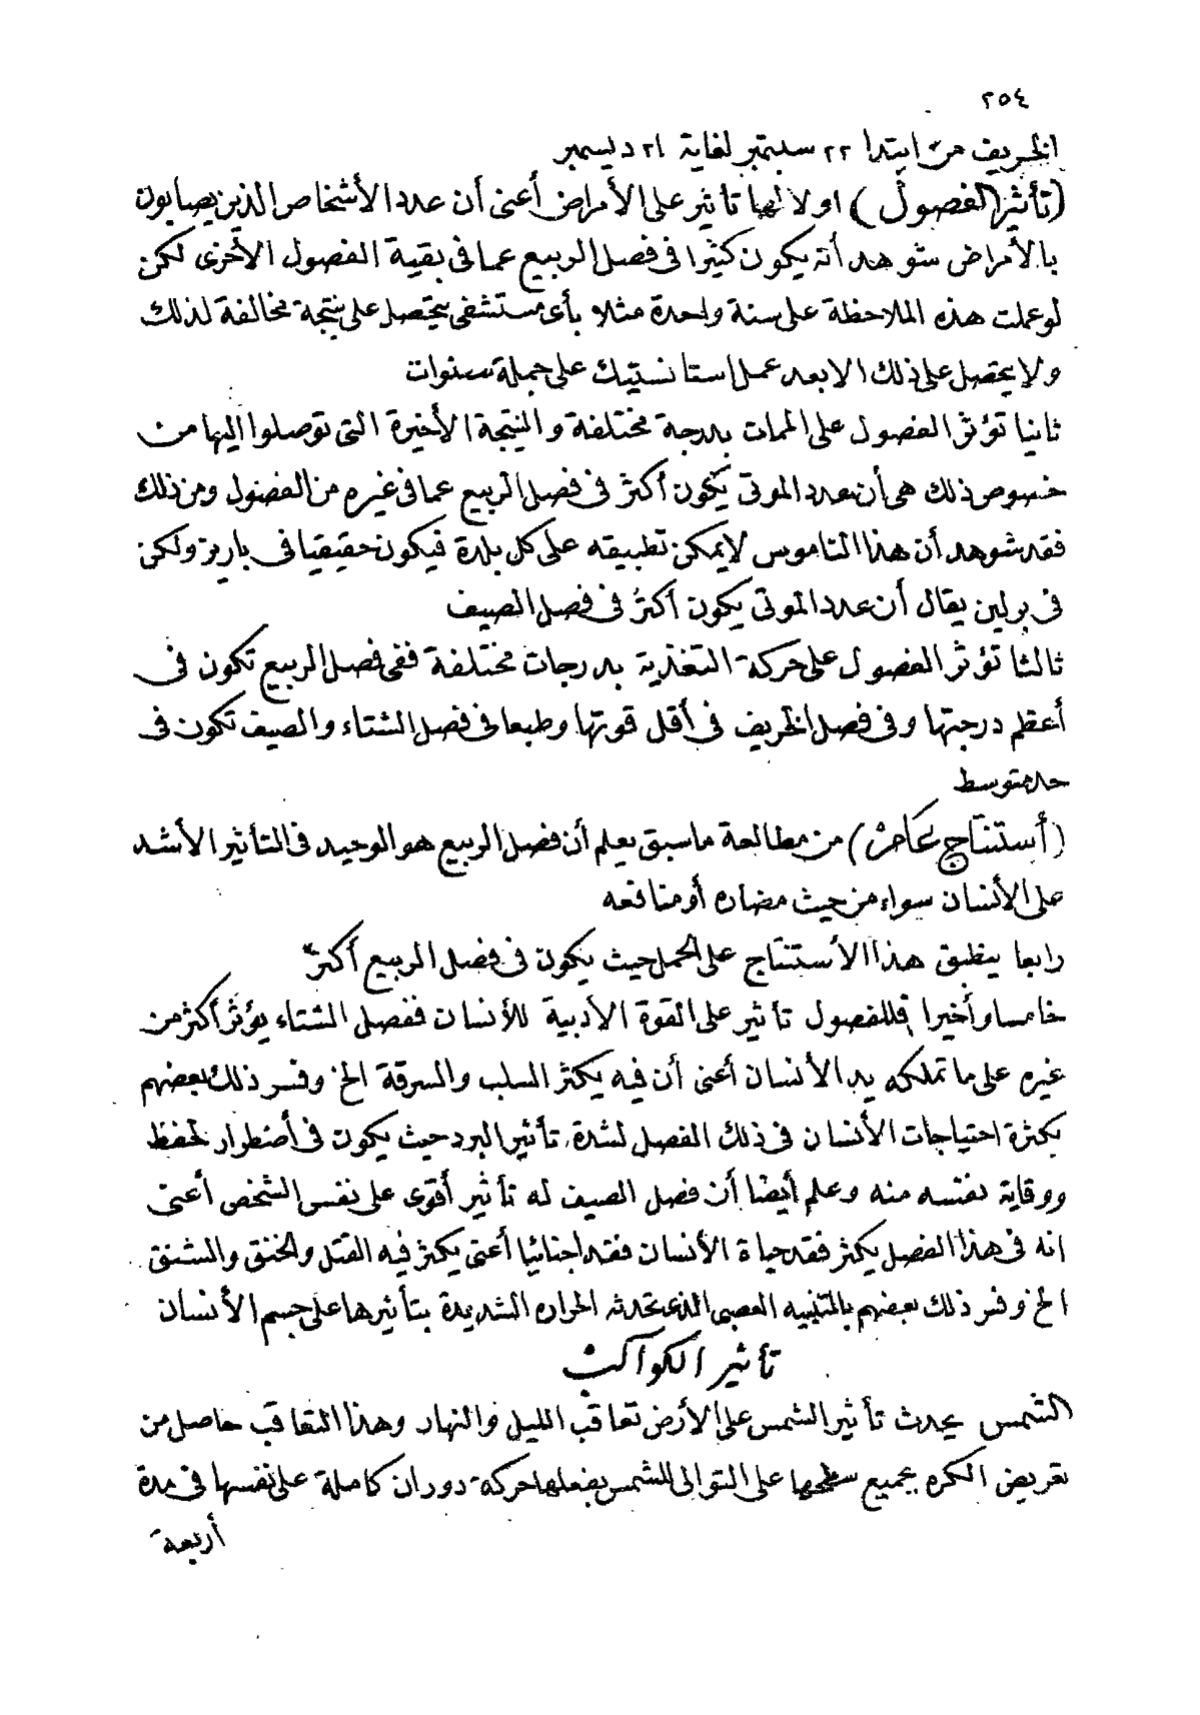 ٢٥٤
الخريف من ابتدا ٢٢ سبتمبر لغاية ٢١ ديسمبر
(تأثير الفصول) اولا لها تأثير على الأمراض أعنى أن عدد الأشخاص الذين يصابون
بالأمراض شوهد أنه يكون كثيرا فى فصل الربيع عما فى بقية الفصول الأخرى لكن
لو عملت هذه الملاحظة على سنة واحدة مثلا بأى مستشفى يتحصل على نتيجة مخالفة لذلك
ولا يتحصل على ذلك الا بعد عمل استانستيك على جملة سنوات
ثانيا تؤثر الفصول على الممات بدرجة مختلفة والنتيجة الأخيرة التى توصلوا اليها من
خصوص ذلك هى أن عدد الموتى يكون أكثر فى فصل الربيع عما فى غيره من الفصول ومن ذلك
فقد شوهد أن هذا الناموس لا يمكن تطبيقه على كل بلدة فيكون حقيقيا فى باريز ولكن
فى برلين يقال أن عدد الموتى يكون أكثر فى فصل الصيف
ثالثا تؤثر الفصول على حركة التغذية بدرجات مختلفة ففى فصل الربيع تكون فى
أعظم درجتها وفى فصل الخريف فى أقل قوتها وطبعا فى فصل الشتاء والصيف تكون فى
حد متوسط
(أستنتاج عام) من مطالعة ما سبق يعلم أن فصل الربيع هو الوحيد فى التأثير الأشد
على الأنسان سواء من حيث مضاره أو منافعه
رابعا ينطبق هذا الأستنتاج على الحمل حيث يكون فى فصل الربيع أكثر
خامسا وأخيرا فللفصول تأثير على القوة الأدبية للأنسان ففصل الشتاء يؤثر أكثر من
غيره على ما تملكه يد الأنسان أعنى أن فيه يكثر السلب والسرقة الخ وفسر ذلك بعضهم
بكثرة احتياجات الأنسان فى ذلك الفصل لشدة تأثير البرد حيث يكون فى أضطرار لحفظ
ووقاية نفسه منه وعلم أيضا أن فصل الصيف له تأثير أقوى على نفس الشخص أعنى
انه فى هذا الفصل يكثر فقد حياة الأنسان فقد اجنائيا أعنى يكثر فيه القتل والخنق والشنق
الخ وفسر ذلك بعضهم بالتنبيه العصبى الذى تحدثه الحراره الشديدة بتأثيرها على جسم الأنسان
تأثير الكواكب
الشمس يحدث تأثير الشمس على الأرض تعاقب الليل والنهار وهذا التعاقب حاصل من
تعريض الكره بجميع سطحها على التوالى للشمس بفعلها حركة دوران كاملة على نفسها فى مدة
أربعة